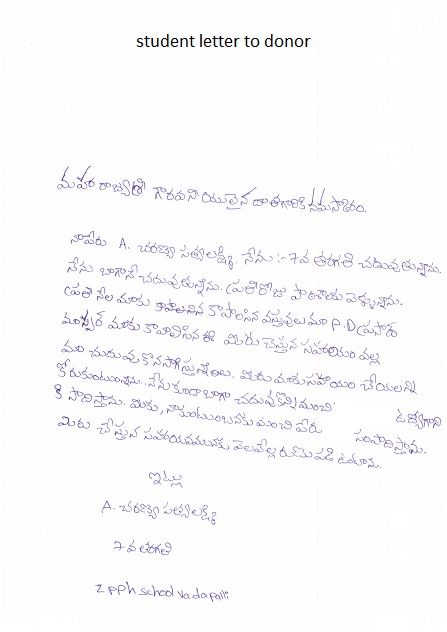 student letter to donor
మహా రాజశ్రీ గౌరవనీయులైన దాతగారికి నమస్కారం.
నాపేరు A. చరణ్యా సత్యలక్ష్మి. నేను :- 7వ తరగతి చదువుతున్నాను.
నేను బాగానే చదువుతున్నాను. ప్రతిరోజు పాఠశాలకు వెళ్ళున్నాను.
ప్రతి నెల మాకు కావాలసిన వస్తువులు మా P.D ప్రసాదు
మాస్టర్ మాకు మీరు చేస్తున్న సహాయం వల్ల
మా చదువు కొనసాగిస్తున్నాము. మీరు మాకు సహాయం చేయాలని
కోరుకుంటున్నాను. నేను కూడా బాగా చదువుకొని మంచి ఉద్యోగాని
కి సాధిస్తాను. మీకు, నా కుటుంబానికి మంచి పేరు సంపాదిస్తాను.
మీరు చేస్తున్న సహాయమునకు వేలవేల రుణపడి ఉంటాను.
ఇట్లు
A. చరణ్యా సత్యలక్ష్మి
7 వ తరగతి
z pph school vadapalli